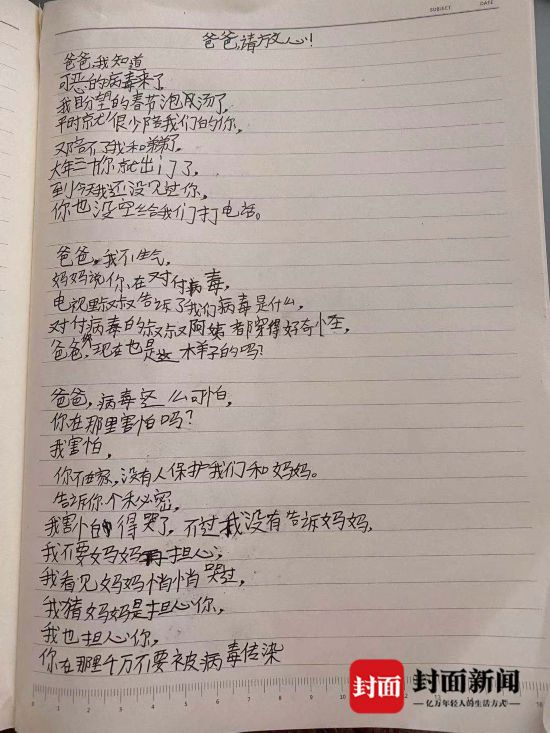 SUBJECT DATE
爸爸,请放心!
爸爸,我知道
可恶的病毒来了
我盼望的春节泡汤了,
平时就很少陪我们的你,
又陪不了我和弟弟了,
大年三十你就出门了,
到今天我还没见过你,
你也没空给我们打电话。
爸爸,我不生气,
妈妈说你在对付病毒,
电视里叔叔告诉了我们病毒是什么,
对付病毒的叔叔阿姨都穿得好奇怪,
爸爸,你现在也是这样子的吗?
爸爸,病毒这么可怕,
你在那里害怕吗?
我害怕,
你不在家,没有人保护我们和妈妈。
告诉你个秘密,
我害怕得哭了,不过我没有告诉妈妈,
我不要妈妈担心,
我看见妈妈悄悄哭过,
我猜妈妈是担心你,
我也担心你,
你在那里千万不要被病毒传染
封面 封面新闻
亿万年轻人的生活方式